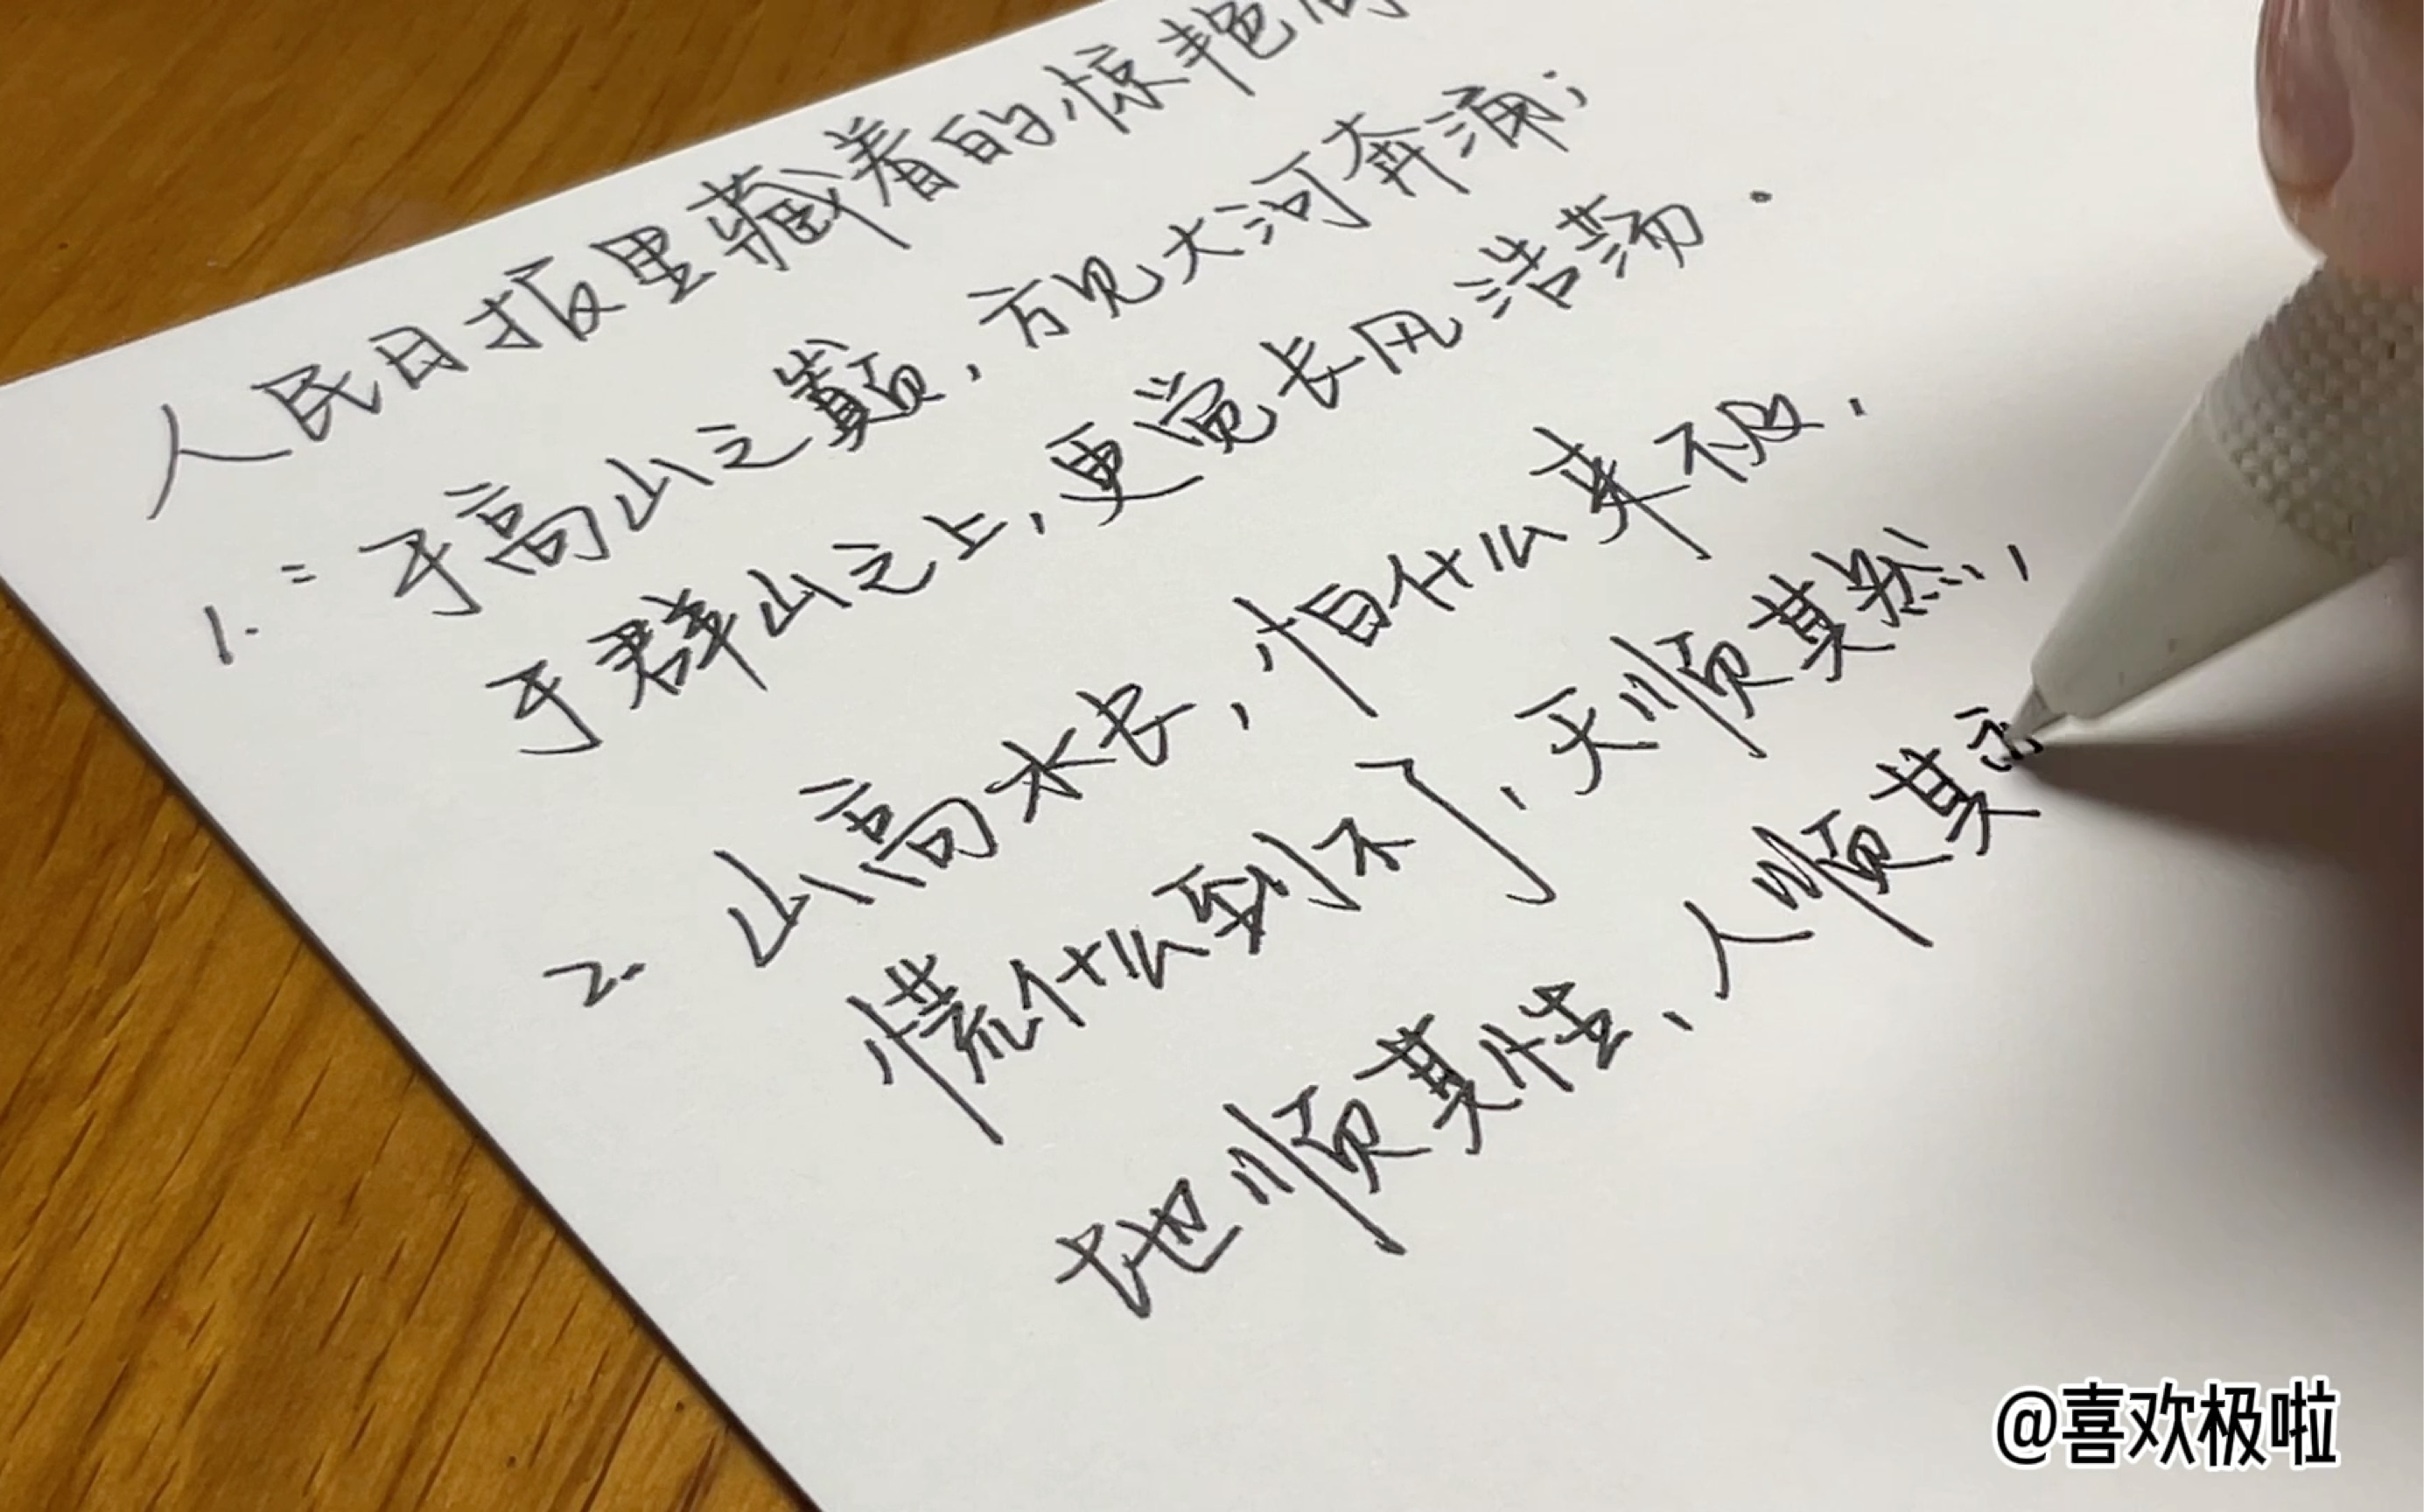 人民日报里藏着的惊艳
1.:于高山之巅,方见大河奔涌;
于群山之上,更觉长风浩荡.
2. 山高水长,怕什么来不及,
慌什么到不了,天顺其然,
地顺其性,人顺其
@喜欢极啦